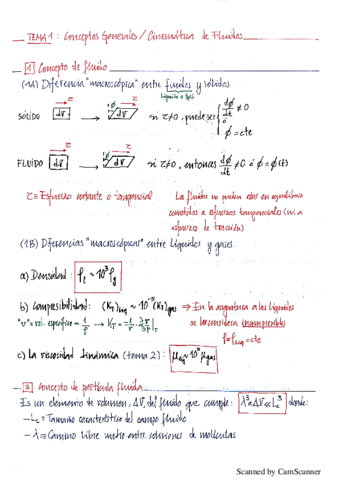 TEMA 1: Conceptos Generales / Cinemática de Fluidos
1 Concepto de fluido
(1A) Diferencia "macroscópica" entre fluidos y sólidos
Líquido o gas
SÓLIDO τ dV → τ dV si τ≠0, puede ser { dϕ/dt ≠ 0
ó
ϕ = cte
FLUIDO dV → τ dV si τ≠0, entonces dϕ/dt ≠ 0 ó ϕ = ϕ(t)
τ ≡ Esfuerzo cortante o tangencial
Los fluidos no pueden estar en equilibrio
sometidos a esfuerzos tangenciales (ni a
esfuerzos de tracción)
(1B) Diferencias "macroscópicas" entre líquidos y gases.
a) Densidad: ρl ~ 10³ ρg
b) Compresibilidad: (KT)liq ~ 10⁻⁵ (KT)gas ⇒ En la asignatura a los líquidos
"v" = vol. específico = 1/ρ → KT = -1/v ∂v/∂p|T se les considera incompresibles
ρ = ρliq = cte
c) La viscosidad dinámica (tema 2): μliq ~ 10² μgas
2 Concepto de partícula fluida
Es un elemento de volumen, ΔV, del fluido que cumple: λ³ ≪ ΔV ≪ Lc³ donde:
- Lc ≡ Tamaño característico del campo fluido
- λ ≡ Camino libre medio entre colisiones de moléculas
Scanned by CamScanner